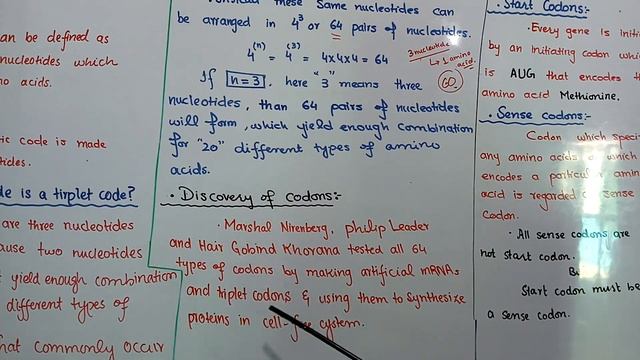 an be defined as
nucleotides which
no acids.
tic code is made
tides.
de is a tirplet code?
are three nucleotides
ause two nucleotides
yield enough combination
different types of
hat commonly occur
these Same nucleotides can
be arranged in 4³ or 64 pairs of nucleotides.
4⁽ⁿ⁾ = 4⁽³⁾ = 4x4x4 = 64
3 nucleotide
↳ 1 amino acid.
If n=3, here "3" means three
nucleotides, than 64 pairs of nucleotides
will form, which yield enough combination
for "20" different types of amino
acids.
• Discovery of codons:-
• Marshal Nirenberg, philip Leader
and Hair Gobind Khorana tested all 64
types of codons by making artificial mRNAs
and triplet codons & using them to Synthesize
proteins in cell-free cystem.
• Start Codons:-
• Every gene is initi
by an initiating codon whic
is AUG that encodes th
amino acid Methionine.
• Sense codons:-
Codon which speci
any amino acids or which
encodes a particular amin
acid is regarded sense
Codon.
• All sense codons are
not start codon.
Bu
Start codon must be
a sense codon.